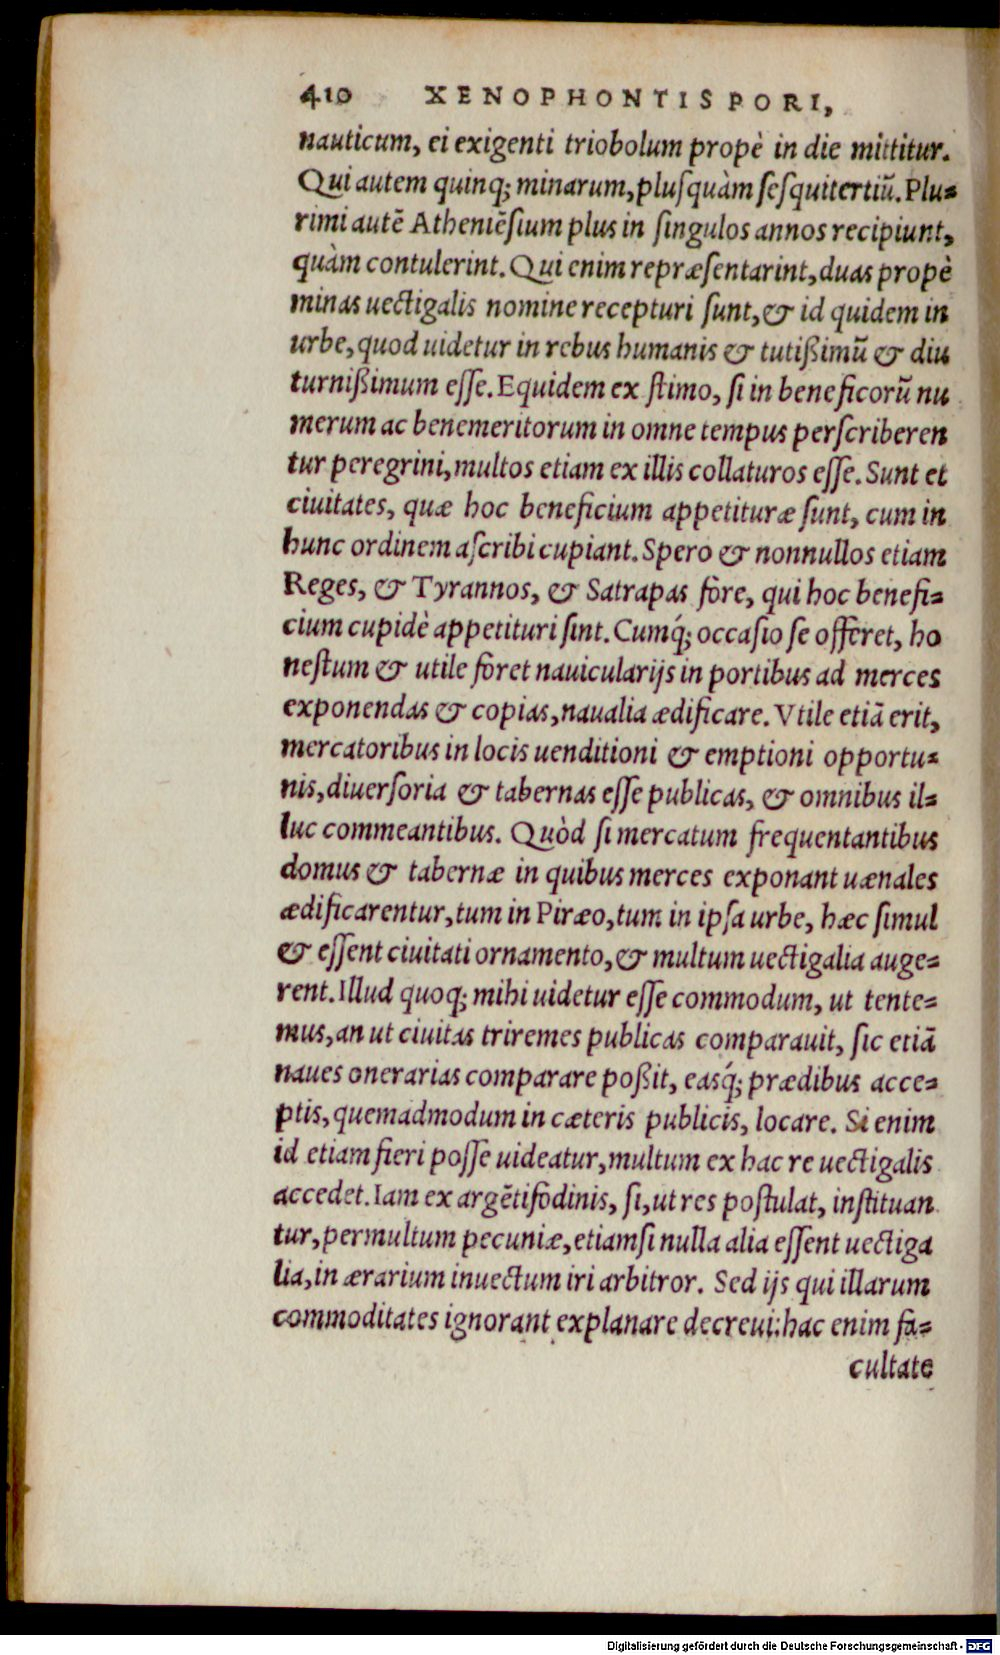 410 XENOPHONTIS PORI,
nauticum, ei exigenti triobolum propè in die mittitur.
Qui autem quinq; minarum, plusquàm sesquitertiũ. Plu-
rimi autẽ Atheniẽsium plus in singulos annos recipiunt,
quàm contulerint. Qui enim repræsentarint, duas propè
minas uectigalis nomine recepturi sunt, & id quidem in
urbe, quod uidetur in rebus humanis & tutißimũ & diu
turnißimum esse. Equidem ex stimo, si in beneficorũ nu
merum ac benemeritorum in omne tempus perscriberen
tur peregrini, multos etiam ex illis collaturos esse. Sunt et
ciuitates, quæ hoc beneficium appetituræ sunt, cum in
hunc ordinem ascribi cupiant. Spero & nonnullos etiam
Reges, & Tyrannos, & Satrapas fore, qui hoc benefi-
cium cupidè appetituri sint. Cumq́; occasio se offeret, ho
nestum & utile foret nauicularijs in portibus ad merces
exponendas & copias, naualia ædificare. Vtile etiã erit,
mercatoribus in locis uenditioni & emptioni opportu-
nis, diuersoria & tabernas esse publicas, & omnibus il-
luc commeantibus. Quòd si mercatum frequentantibus
domus & tabernæ in quibus merces exponant uænales
ædificarentur, tum in Piræo, tum in ipsa urbe, hæc simul
& essent ciuitati ornamento, & multum uectigalia auge-
rent. Illud quoq; mihi uidetur esse commodum, ut tente-
mus, an ut ciuitas triremes publicas comparauit, sic etiã
naues onerarias comparare poßit, easq́; prædibus acce-
ptis, quemadmodum in cæteris publicis, locare. Si enim
id etiam fieri posse uideatur, multum ex hac re uectigalis
accedet. Iam ex argẽtifodinis, si, ut res postulat, instituan
tur, permultum pecuniæ, etiamsi nulla alia essent uectiga
lia, in ærarium inuectum iri arbitror. Sed ijs qui illarum
commoditates ignorant explanare decreui: hac enim fa-
cultate
Digitalisierung gefördert durch die Deutsche Forschungsgemeinschaft - DFG